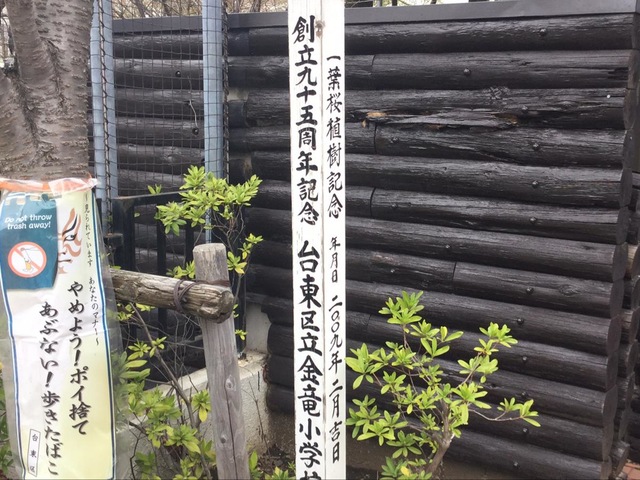 一葉桜植樹記念 年月日 二〇〇九年二月吉日
創立九十五周年記念 台東区立金竜小学校
Do not throw
trash away!
えられています
あなたのマナー〜
やめよう!ポイ捨て
あぶない!歩きたばこ
台東区